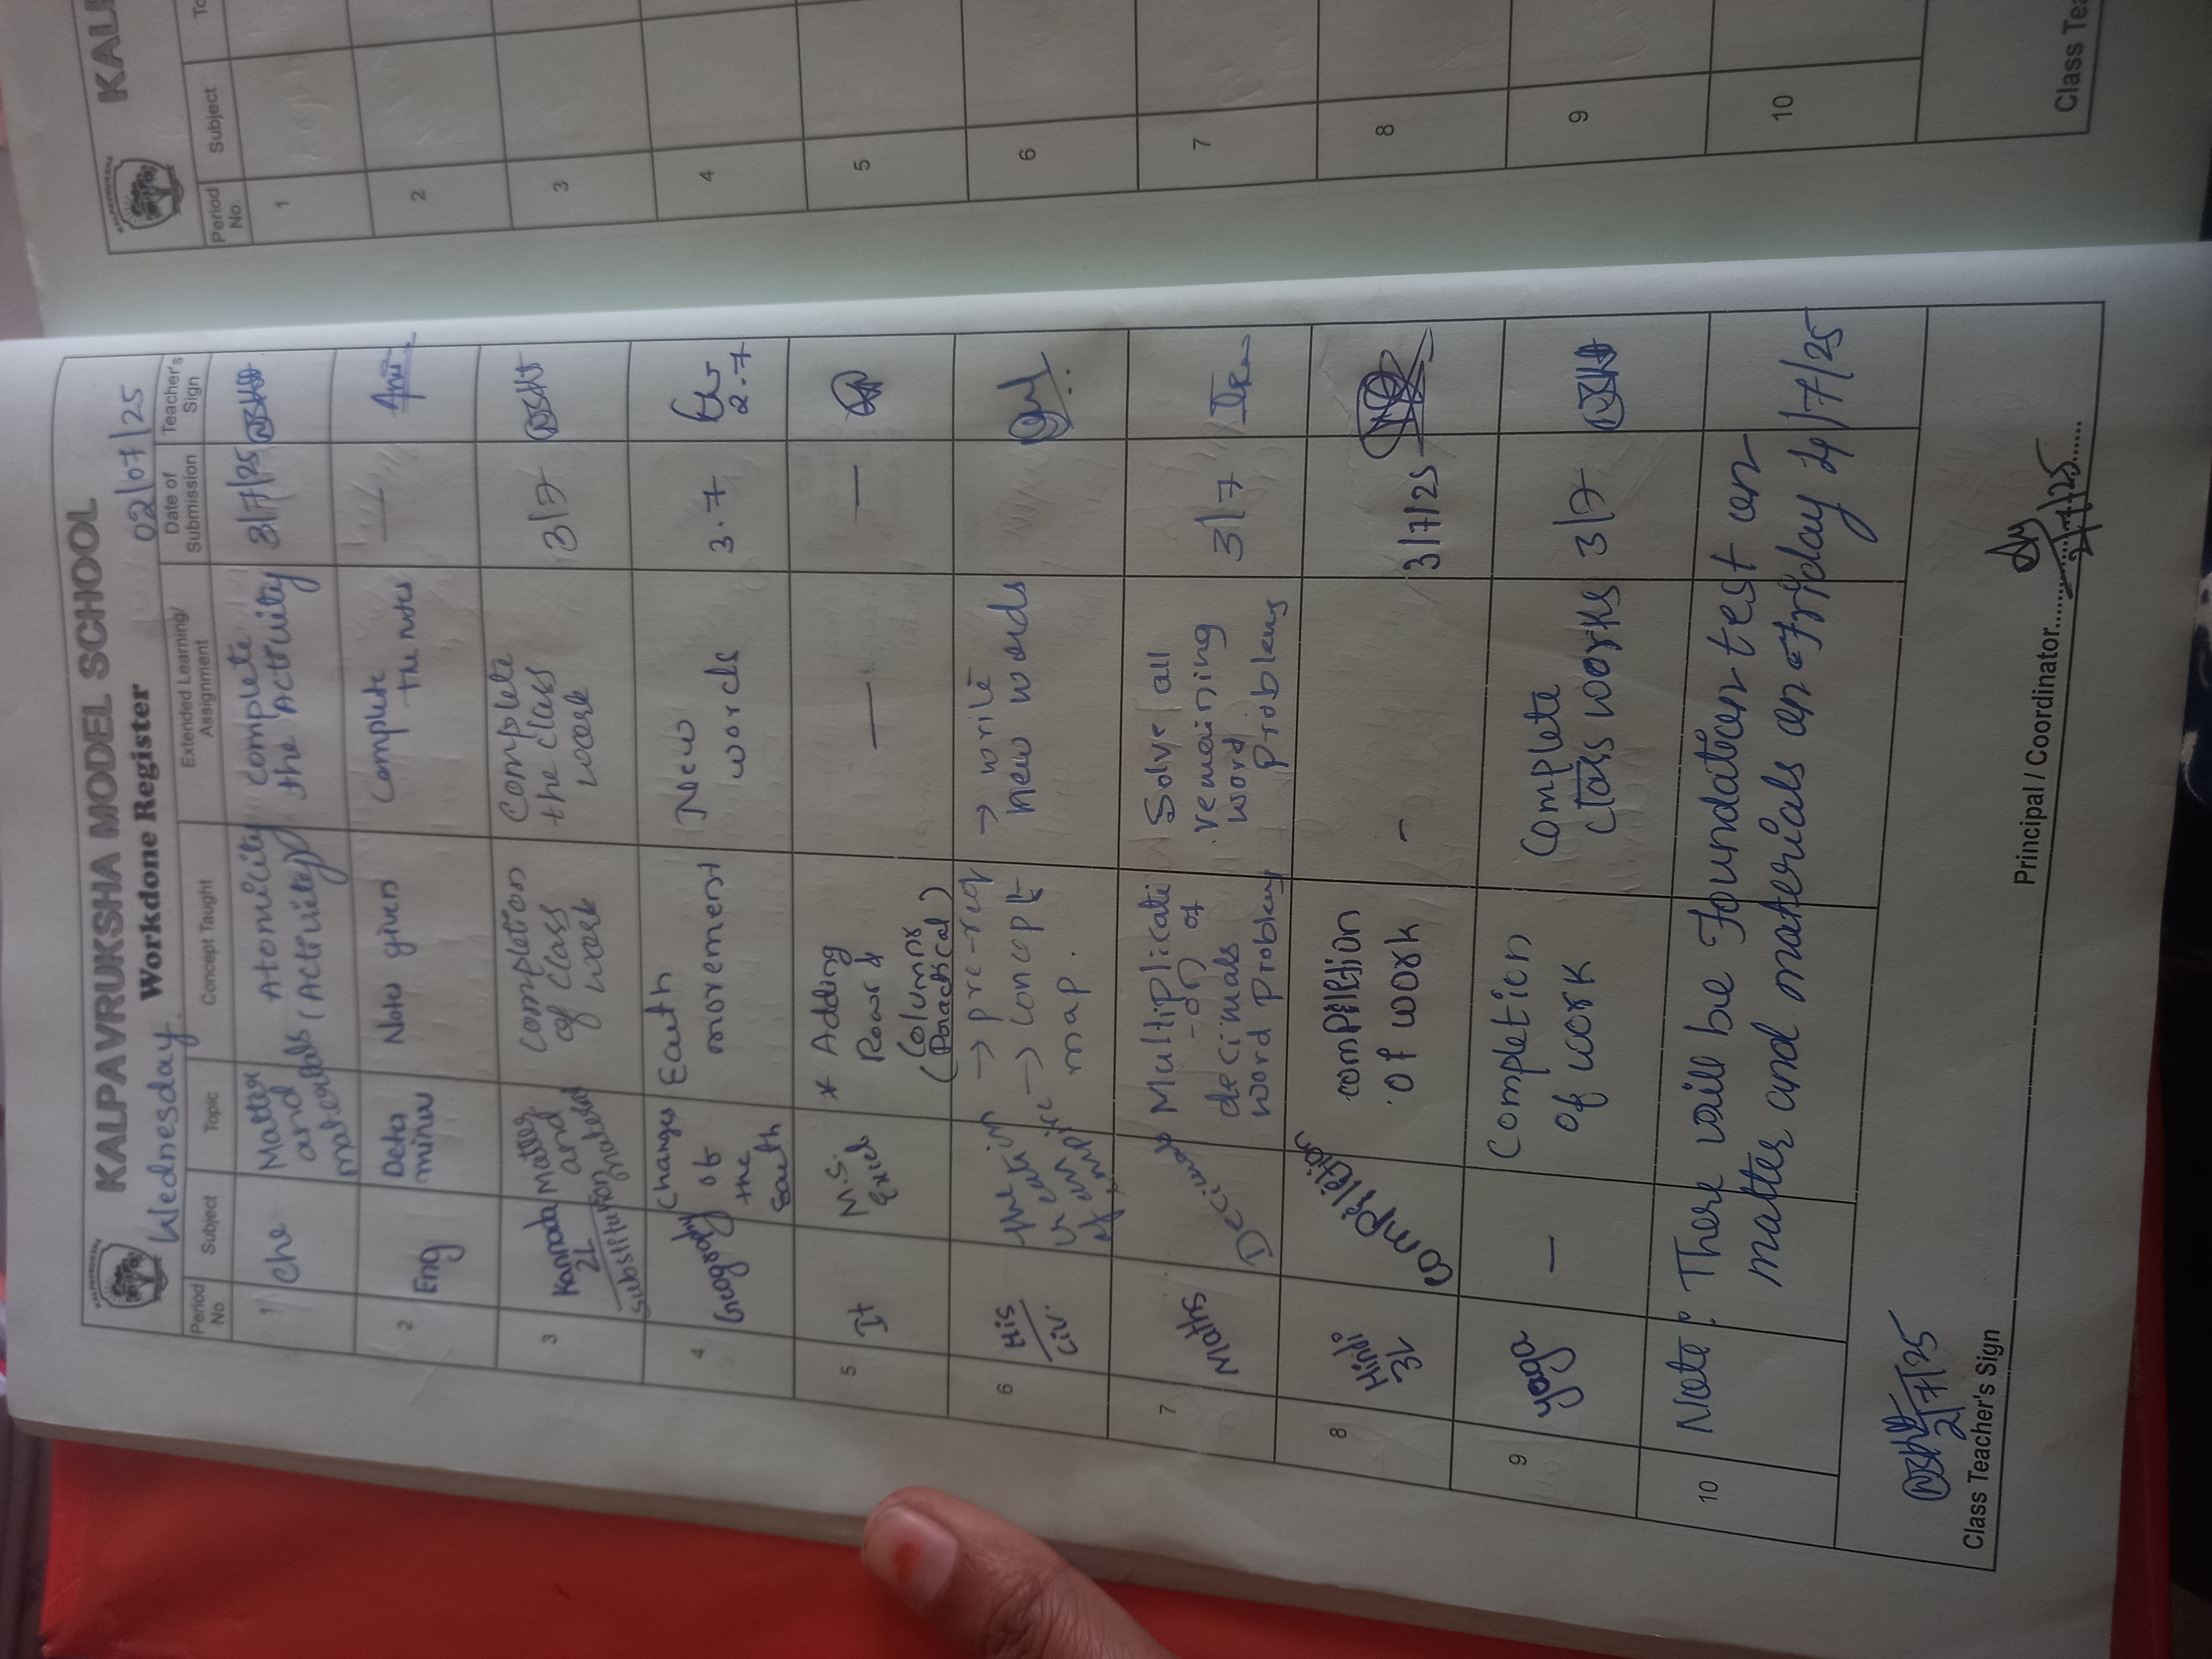 KALPAVRUKSHA MODEL SCHOOL
Wednesday. Workdone Register 02/07/25
Period No. Subject Topic Concept Taught Extended Learning/ Assignment Date of Submission Teacher's Sign
1 Che Matter and materials Atomicity (Activity) complete the Activity 3/7/25
2 Eng Notes given Complete the notes
3 Kannada 2L substitution Matter and material completion of class work Complete the class work 3/7
4 Geography Changes of the Earth Earth movement New words 3.7 2.7
5 It M.S. Excel * Adding Rows & Columns (Practical) — —
6 His/Civ. → pre-req → concept map. → write new words
7 Maths Decimals Multiplicati-on of decimals word problems Solve all remaining word problems 3/7
8 Hindi 3L completion of work - 3/7/25
9 yoga — Completion of work Complete class works 3/7
10 Note: There will be Foundation test on
matter and materials on Friday 4/7/25
2/7/25
Class Teacher's Sign
Principal / Coordinator 2/7/25
KAL
Period No. Subject To
1
2
3
4
5
6
7
8
9
10
Class Tea